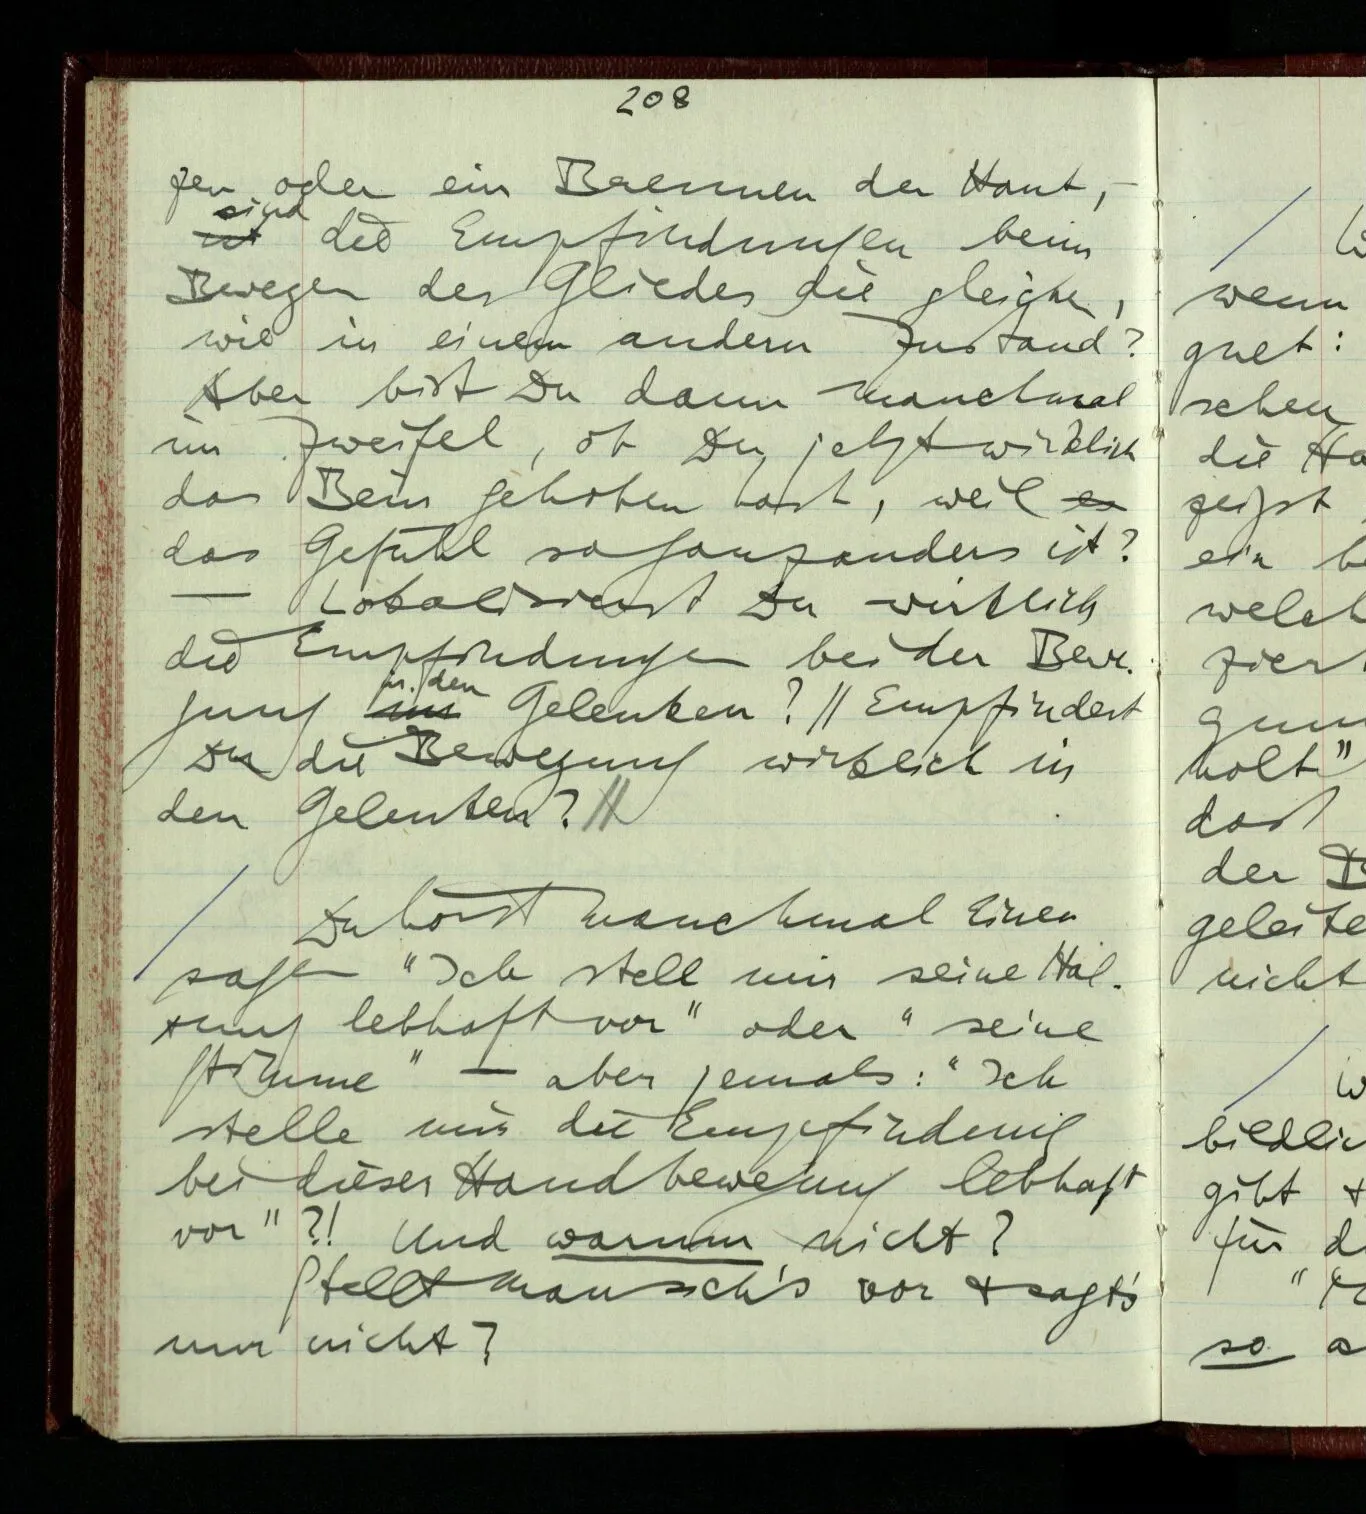 208
zen oder ein Brennen der Haut, –
sind
ist die Empfindungen beim
Bewegen des Gliedes die gleichen,
wie in einem andern Zustand?
Aber bist Du dann manchmal
im Zweifel, ob Du jetzt wirklich
das Bein gehoben hast, weil es
das Gefühl so ganz anders ist?
— Lokalisierst Du wirklich
die Empfindungen bei der Bewe-
in den
gung im Gelenken? // Empfindest
Du die Bewegung wirklich in
den Gelenken? //
/ Du hörst manchmal Einen
sagen "Ich stell mir seine Hal-
tung lebhaft vor" oder "seine
Stimme" — aber jemals: "Ich
stelle mir die Empfindung
bei dieser Handbewegung lebhaft
vor" ?! Und warum nicht?
Stellt man sich's vor & sagt's
nur nicht?
/
wenn
gnet:
schen
die
zeigt
ein
welch
ziert
gun
holt"
dort
der B
geleite
nicht
/ W
bildlic
gibt &
für d
"
so a